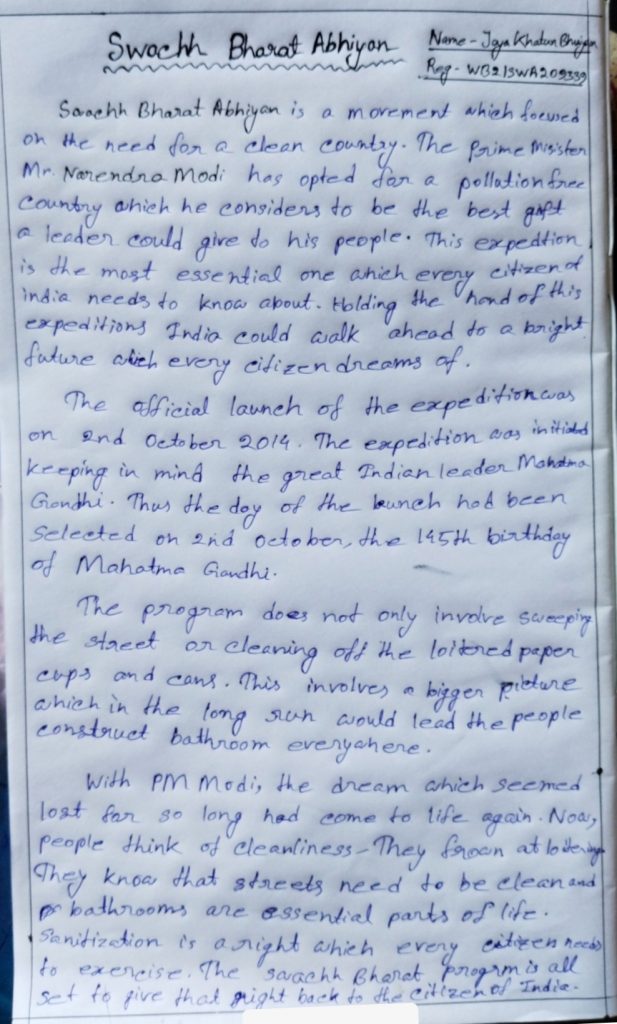 Swachh Bharat Abhiyan
Name - Joya Khatun Bhuiyan
Reg - WB21SWA209339
Swachh Bharat Abhiyan is a movement which focused
on the need for a clean country. The prime Minister
Mr. Narendra Modi has opted for a pollution free
country which he considers to be the best gift
a leader could give to his people. This expedtion
is the most essential one which every citizen of
india needs to know about. Holding the hand of this
expeditions India could walk ahead to a bright
future which every citizen dreams of.
The official launch of the expedition was
on 2nd October 2014. The expedition was initiated
keeping in mind the great Indian leader Mahatma
Gandhi. Thus the day of the launch had been
selected on 2nd october, the 145th birthday
of Mahatma Gandhi.
The program does not only involve sweeping
the street or cleaning off the loitered paper
cups and cans. This involves a bigger picture
which in the long run would lead the people
construct bathroom everywhere.
With PM Modi, the dream which seemed
lost for so long had come to life again. Now,
people think of cleanliness - They frown at loitering.
They know that streets need to be clean and
bathrooms are essential parts of life.
Sanitization is a right which every citizen needs
to exercise. The swachh Bharat progrm is all
set to give that right back to the citizen of India.